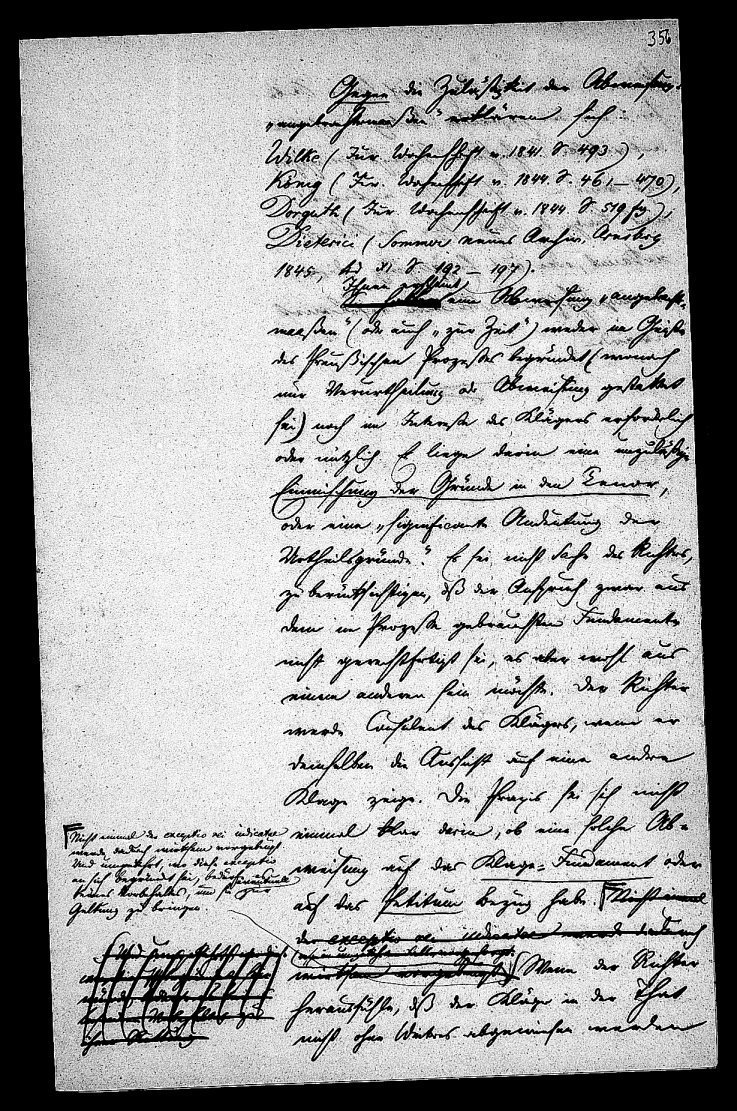 356
Gegen die Zulässigkeit der Abweisung
„angebrachtermaßen“ erklären sich:
Wilke (Jur. Wochenschrift v. 1841. S. 493),
König (Jur. Wochenschrift v. 1844. S. 461–470),
Dorguth (Jur. Wochenschrift v. 1844. S. 519 fg),
Dieterici (Sommer neues Archiv. Arnsberg
1845, Bd XI. S. 192–197).
Ihnen scheint eine Abweisung „angebracht-
maaßen“ (oder auch „zur Zeit“) weder im Geiste
des Preußischen Prozesses begründet (wonach
nur Verurtheilung oder Abweisung gestattet
sei) noch im Interesse des Klägers erforderlich
oder nützlich. Es liege darin eine unzulässige
Einmischung der Gründe in den Tenor,
oder eine „significante Andeutung der
Urtheilsgründe.“ Es sei nicht Sache des Richters,
zu berücksichtigen, daß der Anspruch zwar aus
dem im Prozesse gebrauchten Fundamente
nicht gerechtfertigt sei, es aber wohl aus
einem anderen sein möchte. Der Richter
werde Consulent des Klägers, wenn er
demselben die Aussicht auf eine andere
Klage zeige. Die Praxis sei sich nicht
einmal klar darin, ob eine solche Ab-
weisung auf das Klage-Fundament oder
auf das Petitum Bezug habe. Nicht einmal
der exceptio rei iudicatae werde dadurch
wirksam vorgebeugt. Wenn der Richter
herausfühle, daß der Kläger in der That
nicht ohne Weiteres abgewiesen werden
Nicht einmal der exceptio rei iudicatae
werde dadurch wirksam vorgebeugt
Und umgekehrt, wo diese exceptio
an sich begründet sei, bedürfe
keines Vorbehaltes, um sie zur
Geltung zu bringen.